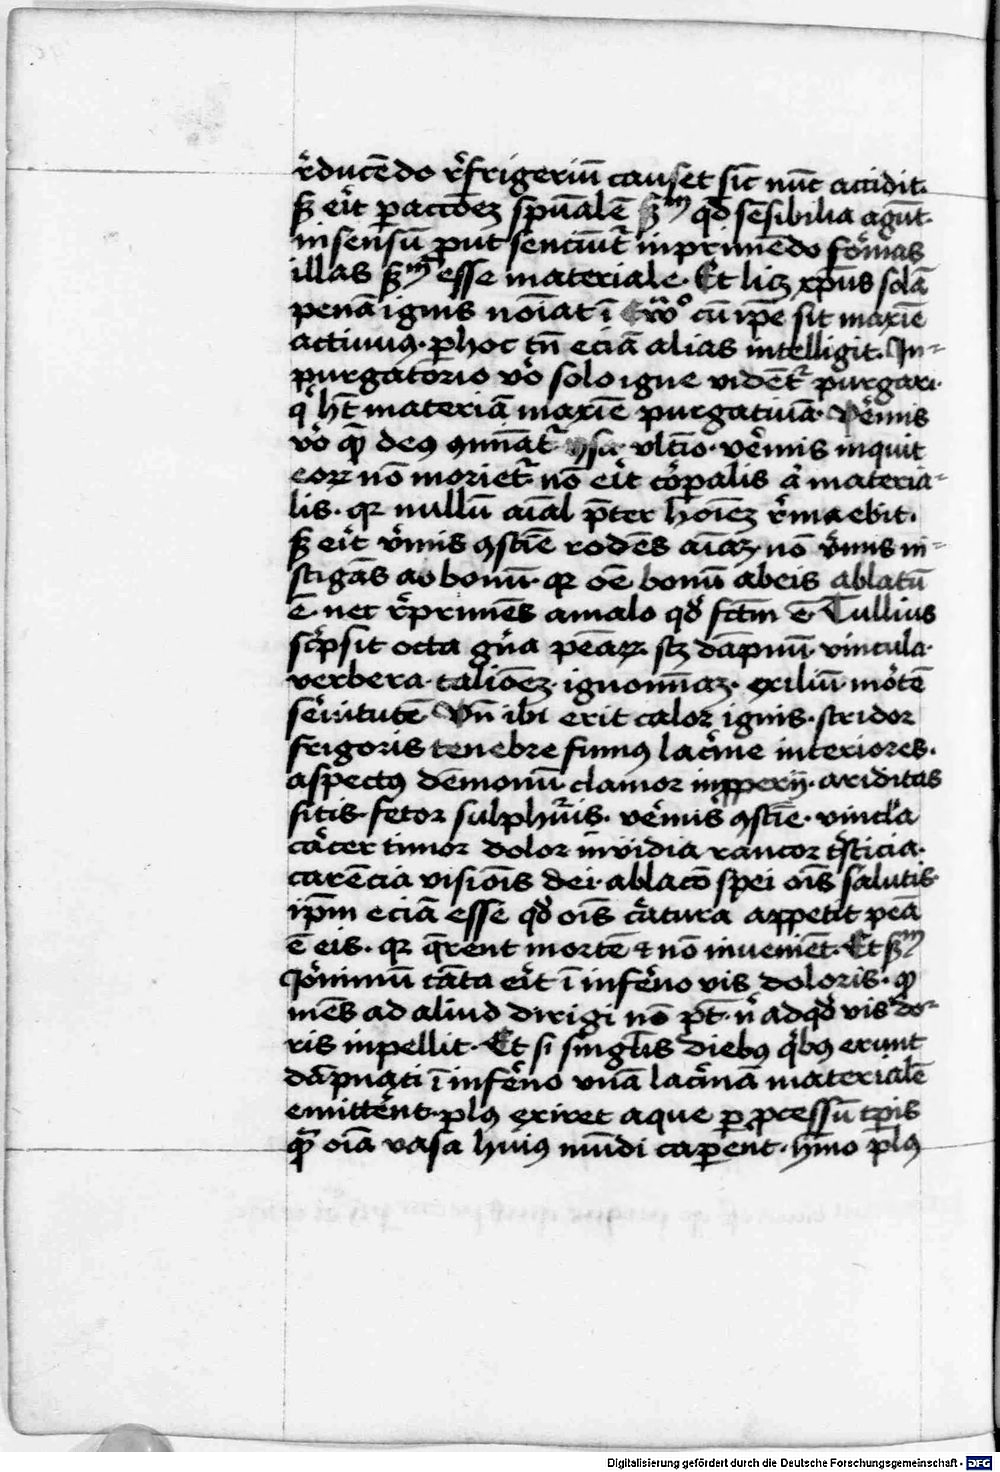 r̄ducēdo r̄frigeriū causet sic̄ nūc accidit.
sꝫ erit ꝑ acc̄oeꝫ sp̄ualē sm̄ qd̄ sēsibilia agūt
in sensū put senciūt᷑ inprimēdo formas
illas sm̄ esse materiale. Et licꝫ xp̄us solā
penā ignis noīat ī cū ip̄e sit maxīe
actiuus. ꝑ hoc tn̄ eciā alias intelligit. In-
purgatorio vo̊ solo igne vidēt᷑ purgari.
q̇ ht̄ materiā maxīe purgatiuā. Vermis
vo̊ quē deus ꝯminat᷑ ysa. vltīo. vermis inquit
eoꝝ nō moriet᷑. nō erit corꝑalis a̾ materia-
lis. qꝛ nullū aīal p̄ter hoīeꝫ r̄maebit.
sꝫ erit vermis ꝯscīe rodēs aīaꝫ nō vermis in-
stigās ad bonū. qꝛ oē bonū ab eis ablatū
ē. nec r̄primēs a malo qd̄ fc̄m ē. Tullius
scͥpsit octa gn̄a penaꝝ. scꝫ dāpnū. vincula.
verbera. talioēꝫ. ignominaꝫ. exiliū mortē
seruitutē. Vn̄ ibi erit calor ignis. stridor
frigoris tenebre fumꝰ lacͥme interiores.
aspectꝰ demonū clamor inpperij. ariditas
sitis. fetor sulphuris. vermis ꝯscīe. vincl̄a
carcer timor dolor inuidia rancor tͥsticia.
carēcia visiōis dei. ablac̄o spei oīs salutis.
ip̄m eciā esse qd̄ oīs cͣatura appetit pēa
ē eis. qꝛ q̄rent mortē ⁊ nō inueniēt. Et sm̄
Jeronimū tāta erit ī inferno vis doloris. ꝙ
mēs ad aliud dirigi nō pt̄. nͥ ad qd̄ vis do-
ris inpellit. Et si singl̄is diebꝰ qͥbꝰ erunt
dāpnati ī inferno vnā lacͥmā materialē
emitterēt. plꝰ exiret aque ꝑ ꝓcessū tp̄is
qͣ oīa vasa huiꝰ mūdi caꝑent. ymmo plꝰ
Digitalisierung gefördert durch die Deutsche Forschungsgemeinschaft - DFG